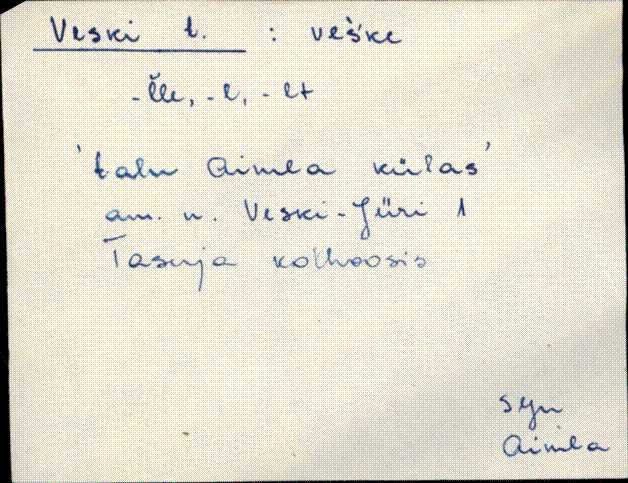 Veski t. : veške
-l̆le, -l, -lt
'talu Aimla külas'
am. n. Veski-Jüri 1
Tasuja kolhoosis
Aimla